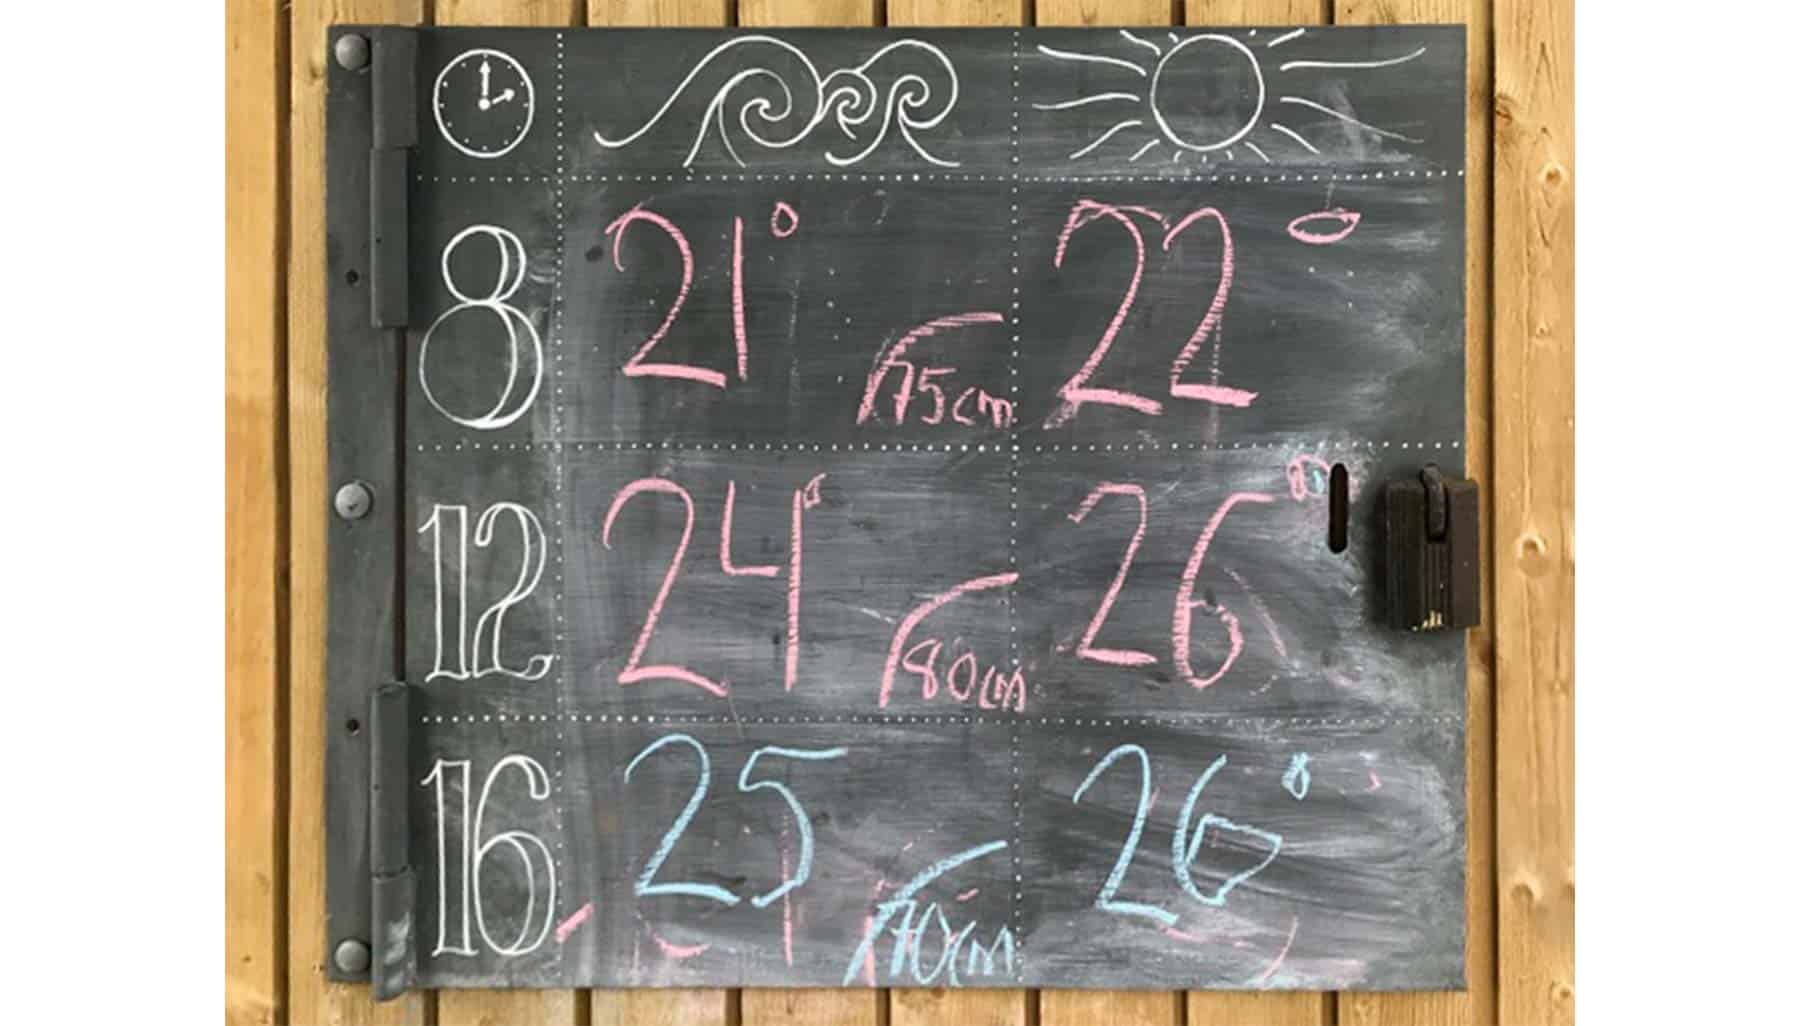 8 21° 75cm 22°
12 24° 80cm 26°
16 25 70cm 26°